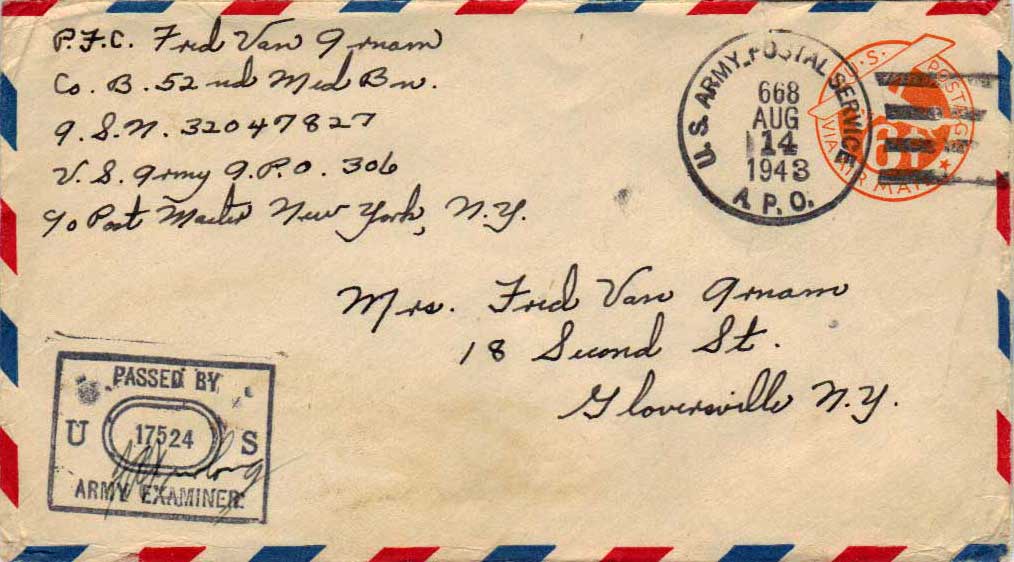 P.F.C. Fred Van Arnam
Co. B. 52nd Med Bn.
A.S.N. 32047827
U.S. Army A.P.O. 306
c/o Post Master New York, N.Y.
U.S. ARMY POSTAL SERVICE
668
AUG
14
1943
A.P.O.
U.S. POSTAGE
6¢
VIA AIR MAIL
Mrs. Fred Van Arnam
18 Second St.
Gloversville N.Y.
PASSED BY
U 17524 S
ARMY EXAMINER